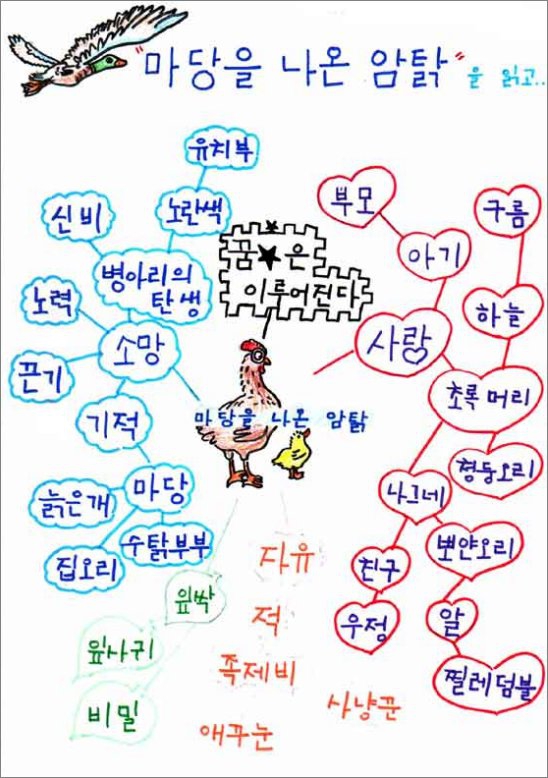 "마당을 나온 암탉"을 읽고..
유치부
신비
노란색
병아리의
탄생
노력
소망
끈기
기적
마당
늙은개
수탉부부
집오리
꿈★은
이루어진다
마당을 나온 암탉
부모
구름
아기
하늘
사랑
초록머리
청둥오리
나그네
뽀얀오리
친구
알
우정
찔레덤불
잎싹
잎사귀
비밀
자유
적
족제비
사냥꾼
애꾸눈